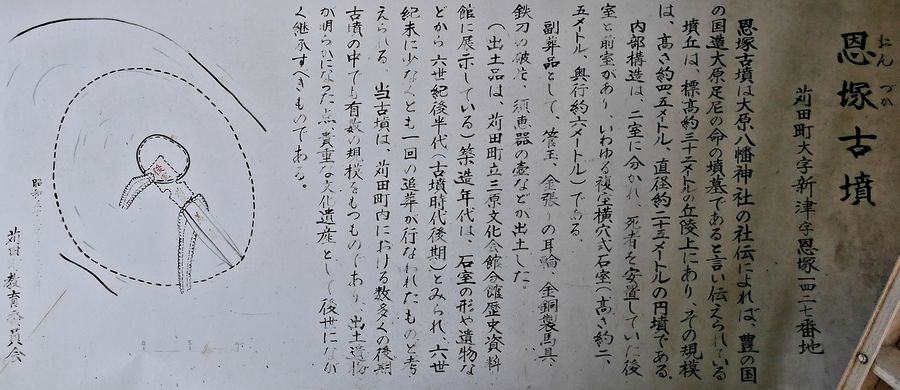 おんづか
恩塚古墳
苅田町大字新津字恩塚一四二七番地
恩塚古墳は大原八幡神社の社伝によれば、豊の国
の国造大原足尼の命の墳墓であると言い伝えられている
墳丘は、標高約三十二メートルの丘陵上にあり、その規模
は、高さ約四・五メートル、直径約二十三メートルの円墳である。
内部構造は、二室に分かれ、死者を安置していた後
室と前室があり、いわゆる複室横穴式石室(高さ約二、
五メートル、奥行約六メートル)である。
副葬品として、管玉、金張りの耳輪、金銅製馬具、
鉄刀の破片、須恵器の壺などが出土した。
(出土品は、苅田町立三原文化会館分館歴史資料
館に展示している)築造年代は、石室の形や遺物な
どから六世紀後半代(古墳時代後期)とみられ、六世
紀末に少なくとも一回の追葬が行なわれたものと考
えられる 当古墳は、苅田町内における数多くの後期
古墳の中でも有数の規模をもつものであり、出土遺物
が明らかになった点貴重な文化遺産として後世になが
く継承すべきものである。
昭和
苅田 教育委員会